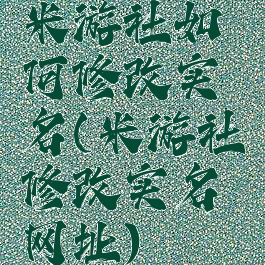 米游社如
何修改实
名(米游社
修改实名
网址)